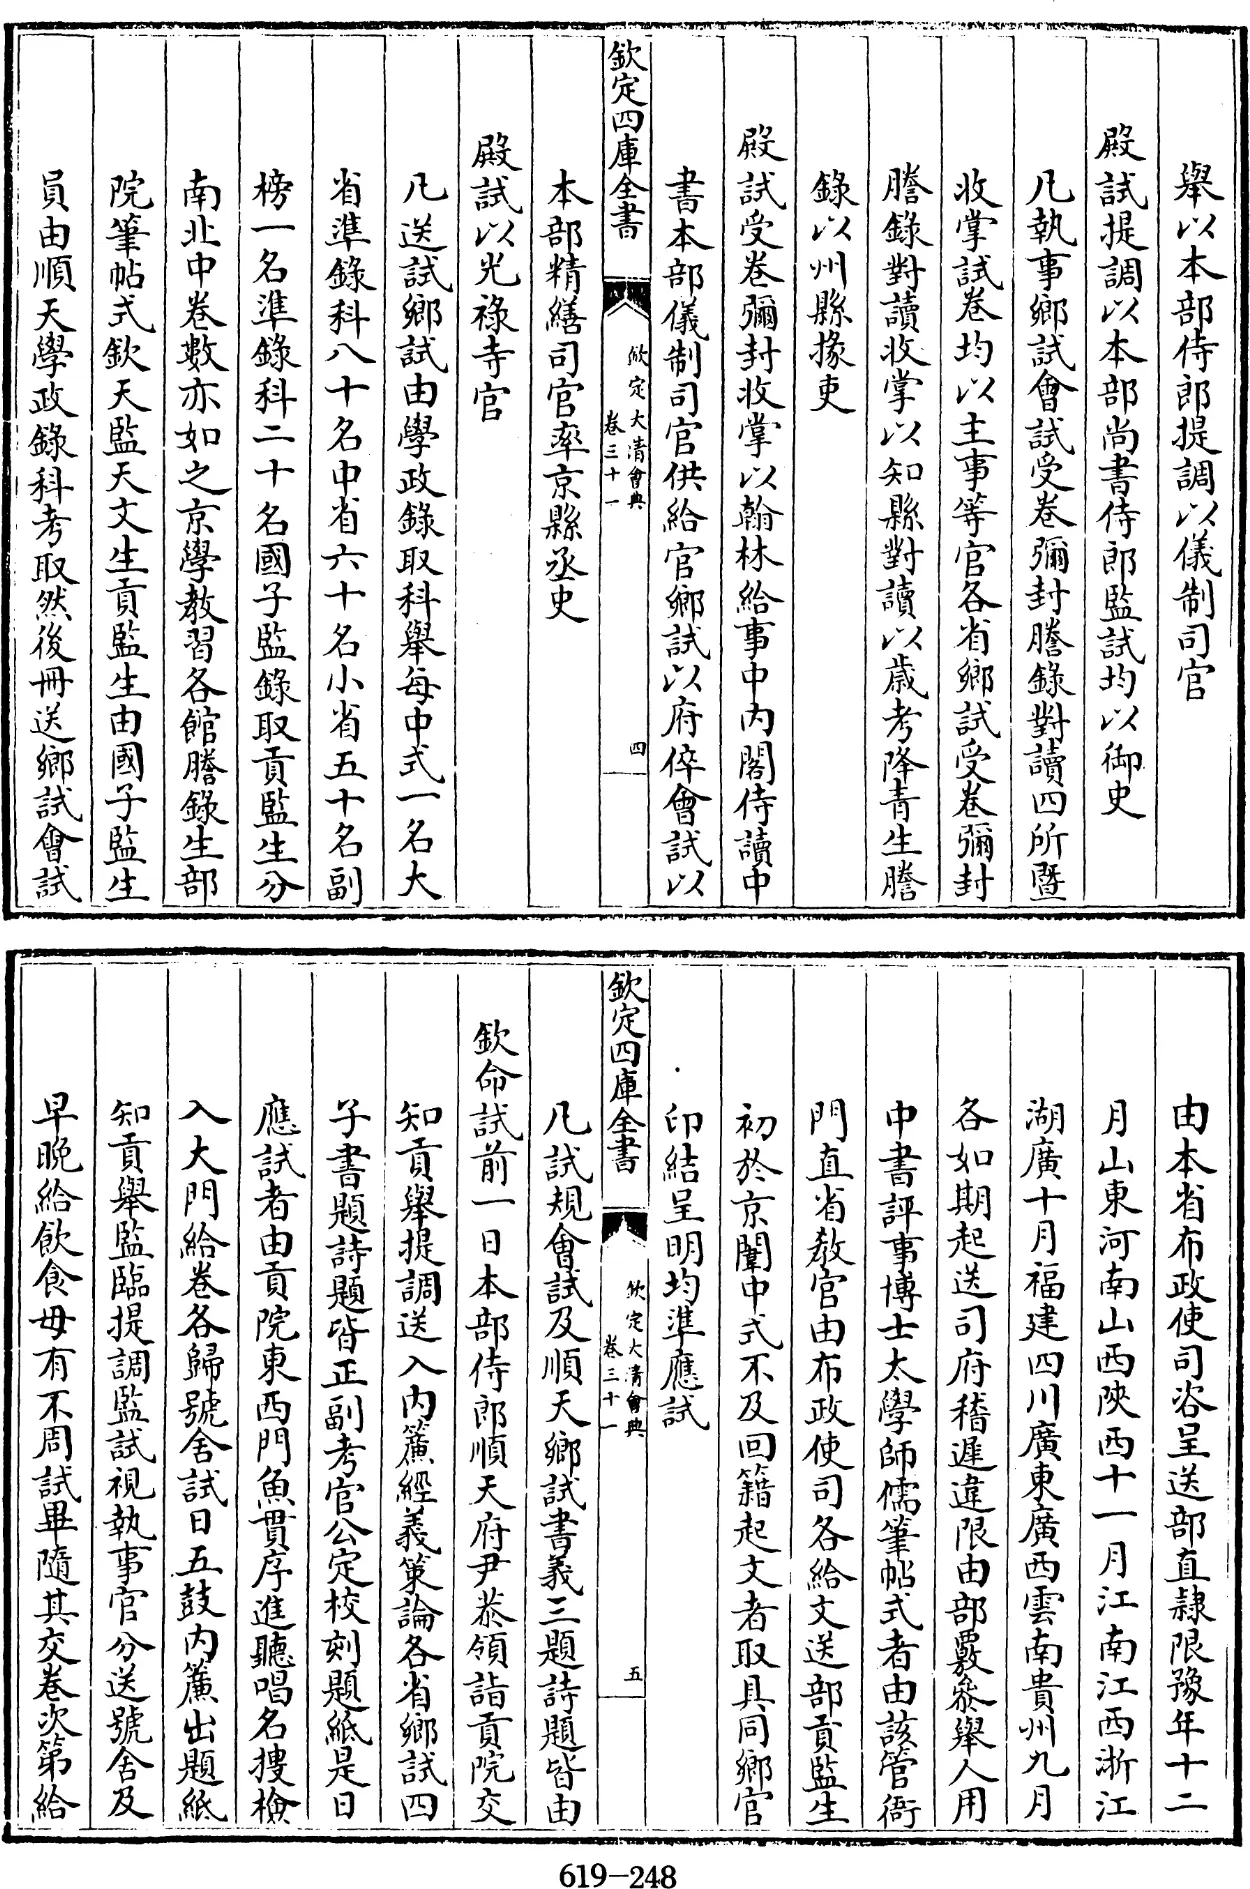 舉以本部侍郎提調以儀制司官
殿試提調以本部尚書侍郎監試均以御史
凡執事鄉試會試受卷彌封謄錄對讀四所暨
收掌試卷均以主事等官各省鄉試受卷彌封
謄錄對讀收掌以知縣對讀以歲考降青生謄
錄以州縣掾吏
殿試受卷彌封收掌以翰林給事中內閣侍讀中
書本部儀制司官供給官鄉試以府倅會試以
欽定四庫全書
欽定大清會典
卷三十一
四
本部精繕司官率京縣丞史
殿試以光祿寺官
凡送試鄉試由學政錄取科舉每中式一名大
省準錄科八十名中省六十名小省五十名副
榜一名準錄科二十名國子監錄取貢監生分
南北中卷數亦如之京學教習各館謄錄生部
院筆帖式欽天監天文生貢監生由國子監生
員由順天學政錄科考取然後冊送鄉試會試
由本省布政使司咨呈送部直隸限豫年十二
月山東河南山西陝西十一月江南江西浙江
湖廣十月福建四川廣東廣西雲南貴州九月
各如期起送司府稽遲違限由部覈叅舉人用
中書評事博士太學師儒筆帖式者由該管衙
門直省教官由布政使司各給文送部貢監生
初於京闈中式不及回籍起文者取具同鄉官
印結呈明均準應試
欽定四庫全書
欽定大清會典
卷三十一
五
凡試規會試及順天鄉試書義三題詩題皆由
欽命試前一日本部侍郎順天府尹恭領詣貢院交
知貢舉提調送入內簾經義策論各省鄉試四
子書題詩題皆正副考官公定校刻題紙是日
應試者由貢院東西門魚貫序進聽唱名搜檢
入大門給卷各歸號舍試日五鼓內簾出題紙
知貢舉監臨提調監試視執事官分送號舍及
早晚給飲食毋有不周試畢隨其交卷次第給
619-248